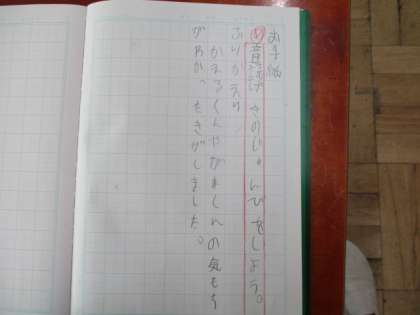 お手紙
め 音読げきのじゅんびをしよう。
ふりかえり
かえるくんやがまくんの気もち
がわかったきがしました。